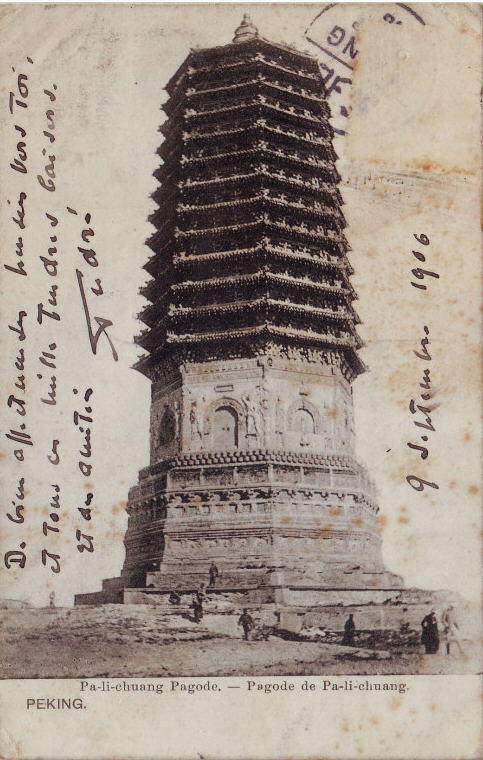 De bien affectueuses pensées vers Toi,
et Tous ces mille Tendres baisers.
et des amitiés
André
9 Septembre 1906
Pa-li-chuang Pagode. — Pagode de Pa-li-chuang.
PEKING.